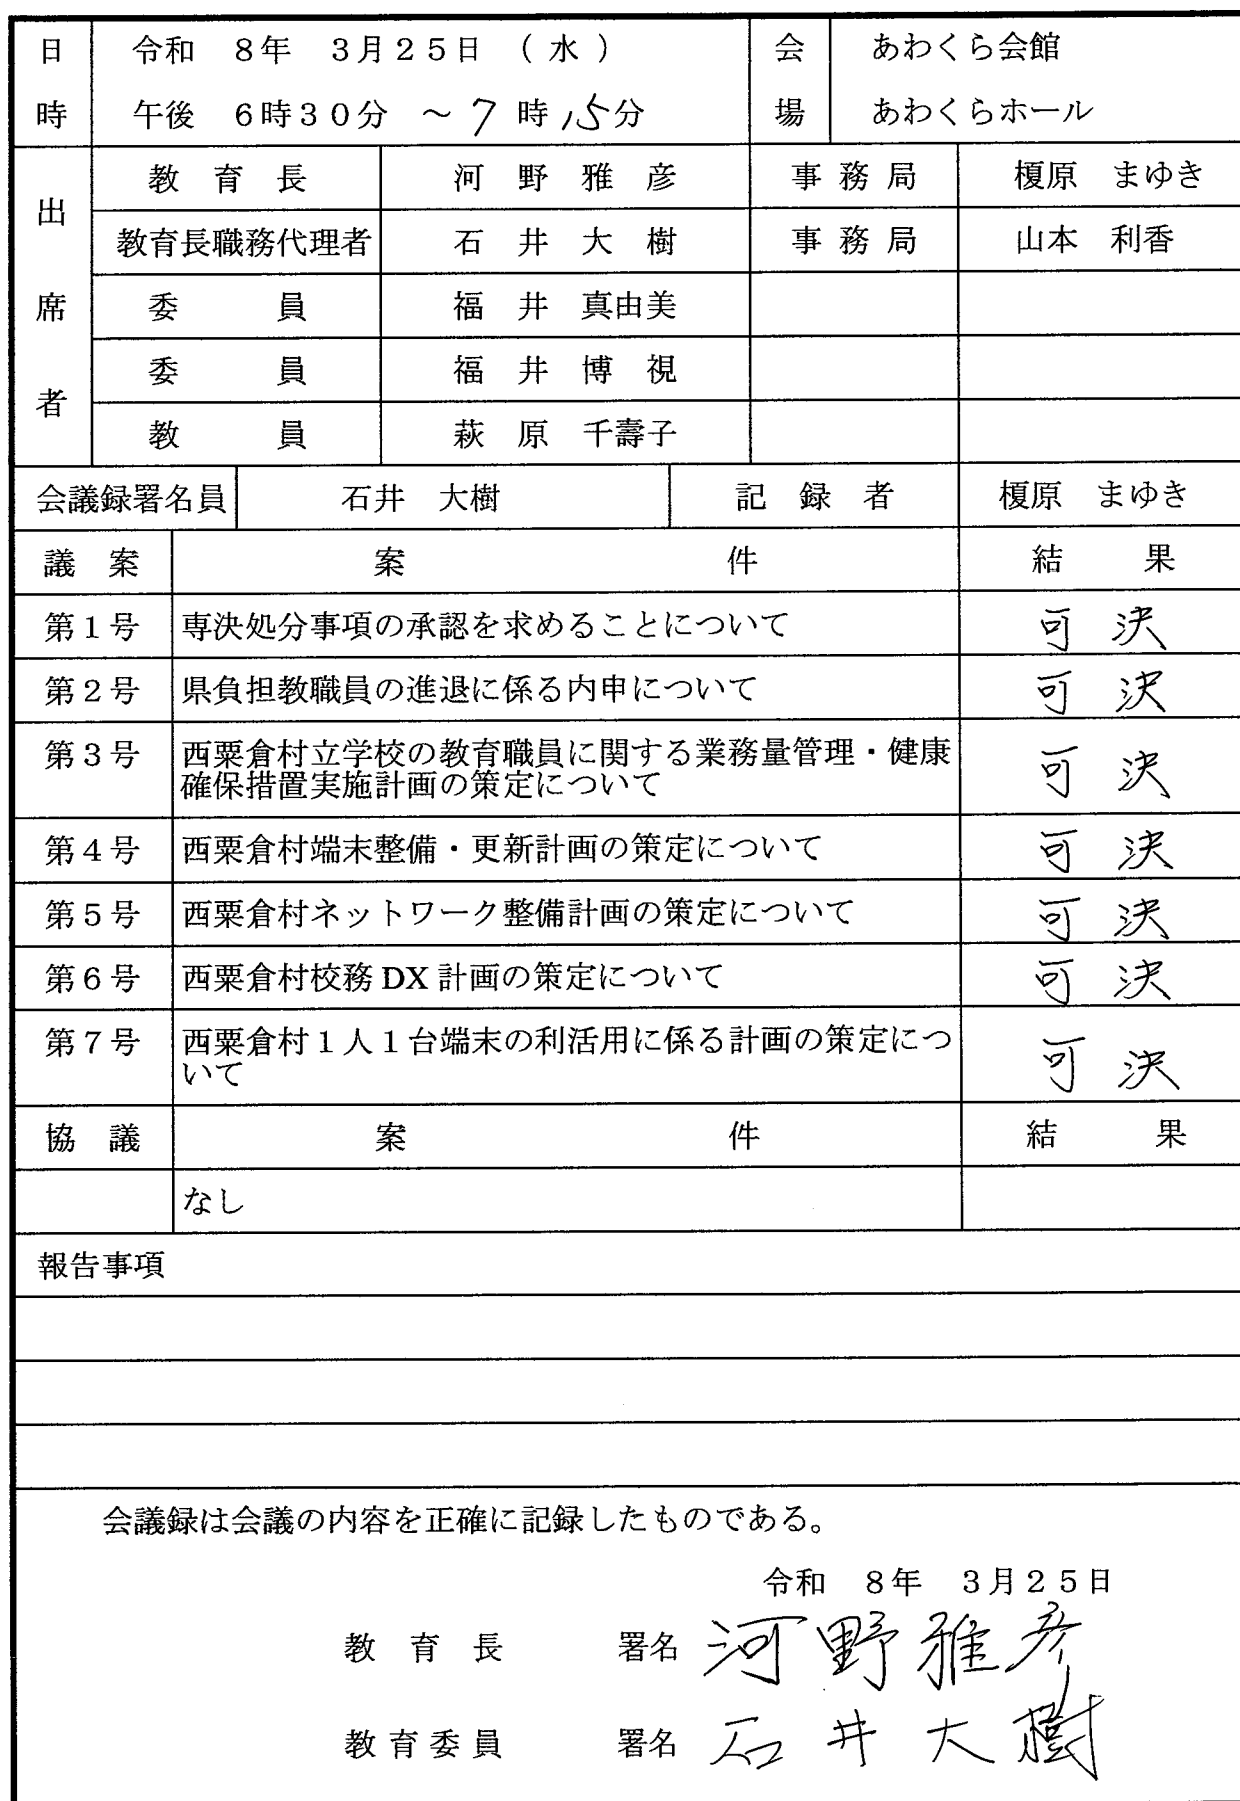 日時 令和 8年 3月25日 (水) 会場 あわくら会館
午後 6時30分 ~7時15分 あわくらホール
出席者 教育長 河野雅彦 事務局 榎原 まゆき
教育長職務代理者 石井大樹 事務局 山本 利香
委員 福井 真由美
委員 福井博視
教員 萩原 千壽子
会議録署名員 石井 大樹 記録者 榎原 まゆき
議案 案件 結果
第1号 専決処分事項の承認を求めることについて 可決
第2号 県負担教職員の進退に係る内申について 可決
第3号 西粟倉村立学校の教育職員に関する業務量管理・健康 可決
確保措置実施計画の策定について
第4号 西粟倉村端末整備・更新計画の策定について 可決
第5号 西粟倉村ネットワーク整備計画の策定について 可決
第6号 西粟倉村校務DX計画の策定について 可決
第7号 西粟倉村1人1台端末の利活用に係る計画の策定につ 可決
いて
協議 案件 結果
なし
報告事項
会議録は会議の内容を正確に記録したものである。
令和 8年 3月25日
教育長 署名 河野雅彦
教育委員 署名 石井大樹